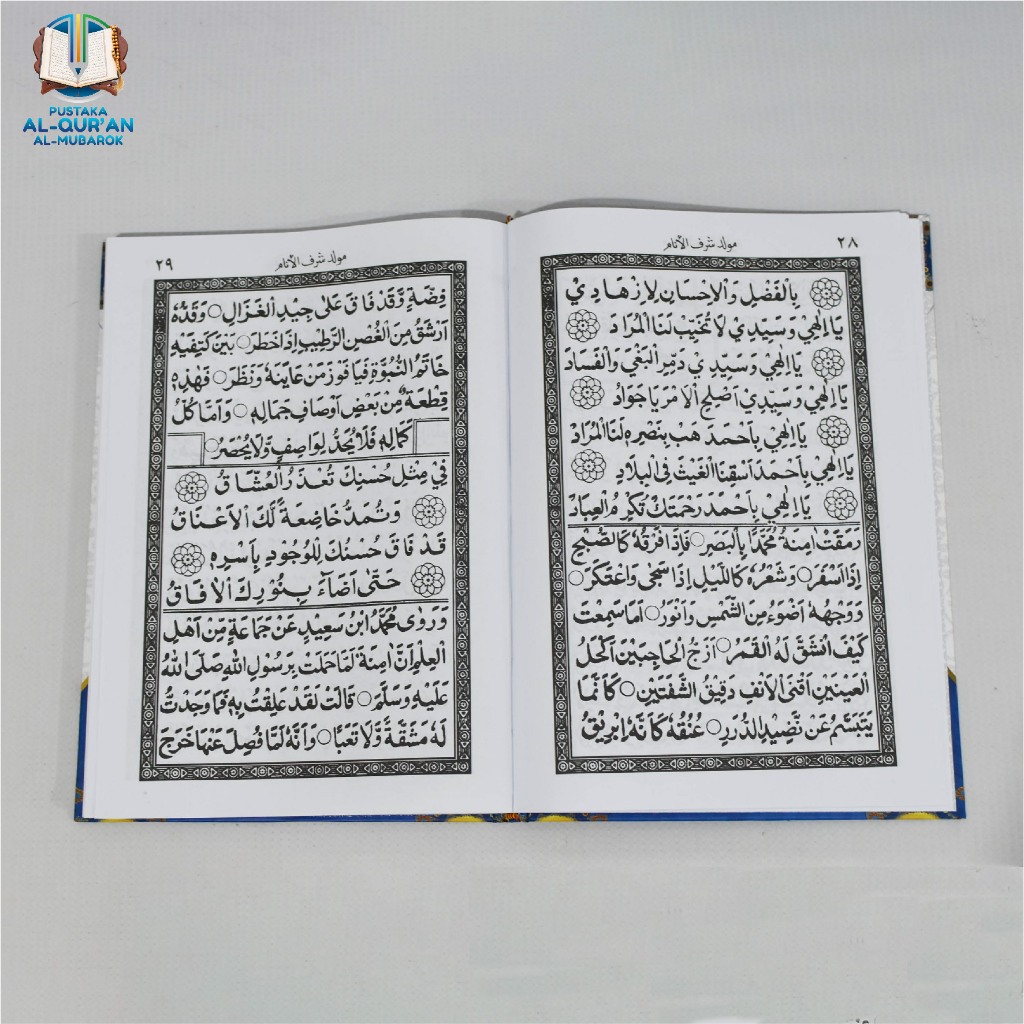 PUSTAKA
AL-QUR'AN
AL-MUBAROK
٢٨
مولد شرف الأنام
بِالْفَضْلِ وَالْاِحْسَانِ لِاِزْهَادِيْ
يَا اِلٰهِيْ وَسَيِّدِيْ لَا تُخَيِّبْ لَنَا الْمُرَادْ
يَا اِلٰهِيْ وَسَيِّدِيْ دَمِّرِ الْبَغْيَ وَالْفَسَادْ
يَا اِلٰهِيْ وَسَيِّدِيْ اَصْلِحِ الْاَمْرَ يَا جَوَادْ
يَا اِلٰهِيْ بِاَحْمَدَ هَبْ بِنَصْرِهٖ لَنَا الْمُرَادْ
يَا اِلٰهِيْ بِاَحْمَدَ اَسْقِنَا الْغَيْثَ فِى الْبِلَادْ
يَا اِلٰهِيْ بِاَحْمَدَ رَحْمَتَكْ تُكْرِمُ الْعِبَادْ
رَمَقَتْ اٰمِنَةُ مُحَمَّدًا بِالْبَصَرِ ○ فَاِذَا فَرْقُهٗ كَالصُّبْحِ
اِذَا اَسْفَرَ ○ وَشَعْرُهٗ كَاللَّيْلِ اِذَا سَجٰى وَاعْتَكَرَ ○
وَوَجْهُهٗ اَضْوَءُ مِنَ الشَّمْسِ وَاَنْوَرُ ○ اَمَا سَمِعْتَ
كَيْفَ انْشَقَّ لَهُ الْقَمَرُ ○ اَزَجُّ الْحَاجِبَيْنِ اَكْحَلُ
الْعَيْنَيْنِ اَقْنَى الْاَنْفِ دَقِيْقُ الشَّفَتَيْنِ ○ كَاَنَّمَا
يَتَبَسَّمُ عَنْ نَضِيْدِ الدُّرَرِ ○ عُنُقُهٗ كَاَنَّهٗ اِبْرِيْقُ
مولد شرف الأنام
٢٩
فِضَّةٍ وَّقَدْ فَاقَ عَلٰى جِيْدِ الْغَزَالِ ○ وَقَدُّهٗ
اَرْشَقُ مِنَ الْغُصْنِ الرَّطِيْبِ اِذَا خَطَرَ ○ بَيْنَ كَتِفَيْهِ
خَاتَمُ النُّبُوَّةِ فَيَا فَوْزَ مَنْ عَايَنَهٗ وَنَظَرَ ○ فَهٰذِهٖ
قِطْعَةٌ مِّنْ بَعْضِ اَوْصَافِ جَمَالِهٖ ○ وَاَمَّا كُلُّ
كَمَالِهٖ فَلَا يُحَدُّ لِوَاصِفٍ وَّلَا يُحْصَرُ ○
فِيْ مِثْلِ حُسْنِكَ تُعْذَرُ الْعُشَّاقُ
وَتُمَدُّ خَاضِعَةً لَّكَ الْاَعْنَاقُ
قَدْ فَاقَ حُسْنُكَ لِلْوُجُوْدِ بِاَسْرِهٖ
حَتّٰى اَضَاۤءَ بِنُوْرِكَ الْاٰفَاقُ
وَرَوٰى مُحَمَّدُ ابْنُ سَعِيْدٍ عَنْ جَمَاعَةٍ مِّنْ اَهْلِ
الْعِلْمِ اَنَّ اٰمِنَةَ لَمَّا حَمَلَتْ بِرَسُوْلِ اللهِ صَلَّى اللهُ
عَلَيْهِ وَسَلَّمَ ○ قَالَتْ لَقَدْ عَلِقْتُ بِهٖ فَمَا وَجَدْتُ
لَهٗ مَشَقَّةً وَّلَا تَعَبًا ○ وَاَنَّهٗ لَمَّا فُصِلَ عَنْهَا خَرَجَ